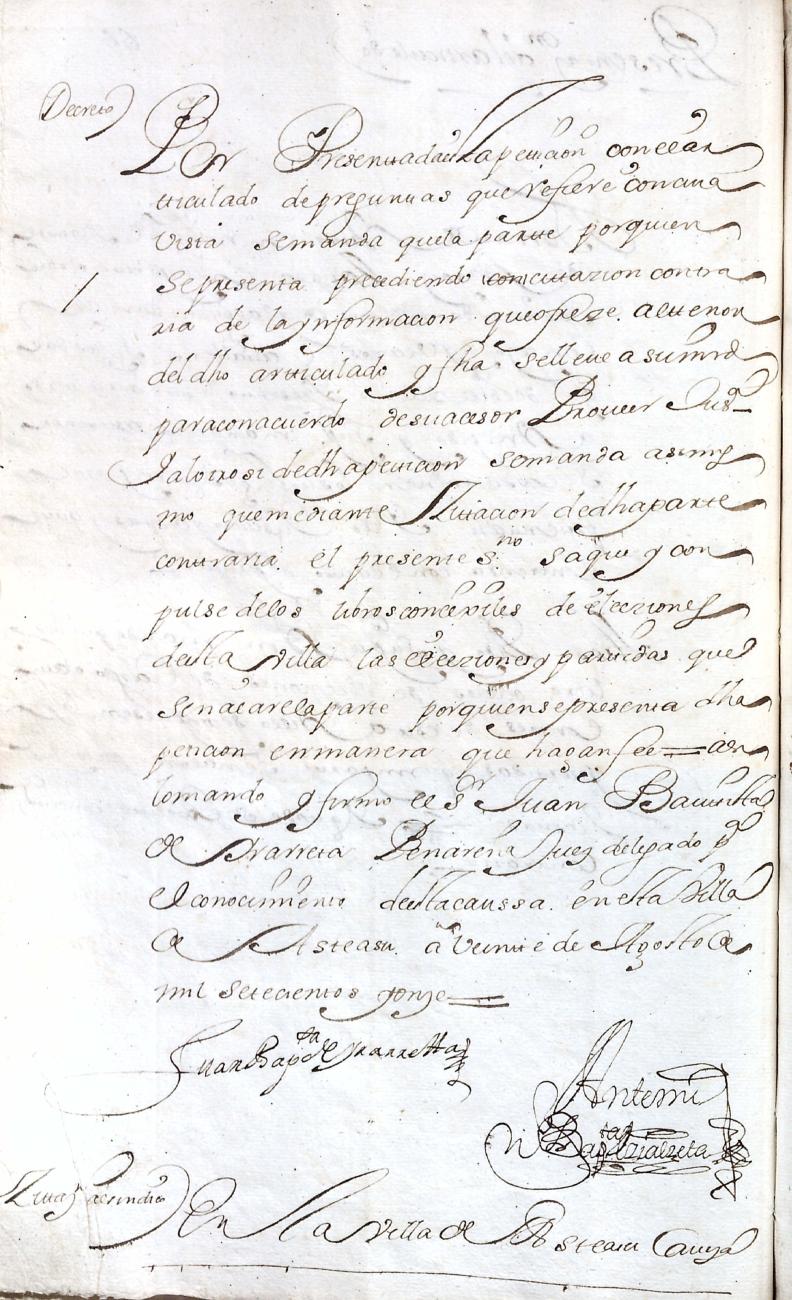 Decreto
Por Presentada la peticion con el ar
tticulado de preguntas que refiere con cuia
vista se manda que la parte por quien
se presenta precediendo con cittazion contra
ria de la ynformacion que ofreze al ttenor
del dho artticulado y fha se lleve a su mrd
para con acuerdo de su acesor Proveer Jusa
Y al otrosi de dha peticion se manda asimis
mo que mediante Zittacion de dha parte
contraria el presente sno saque y con
pulse de los libros concexiles de elecziones
desta Villa las elecziones y partidas que
señalare la parte por quien se presenta dha
peticion en manera que hagan fee = asi
lo mando y firmo el Sr Juan Bauttista
de Yrarreta Juez delegado pa
el conocimiento desta caussa en esta Villa
de Asteasu a Veinte de Agosto de
mil setecientos y onze =
Juan Bapta de Yrarretta
Ante mi
Bapta
Zitaon al sindico
En la villa de Asteasu